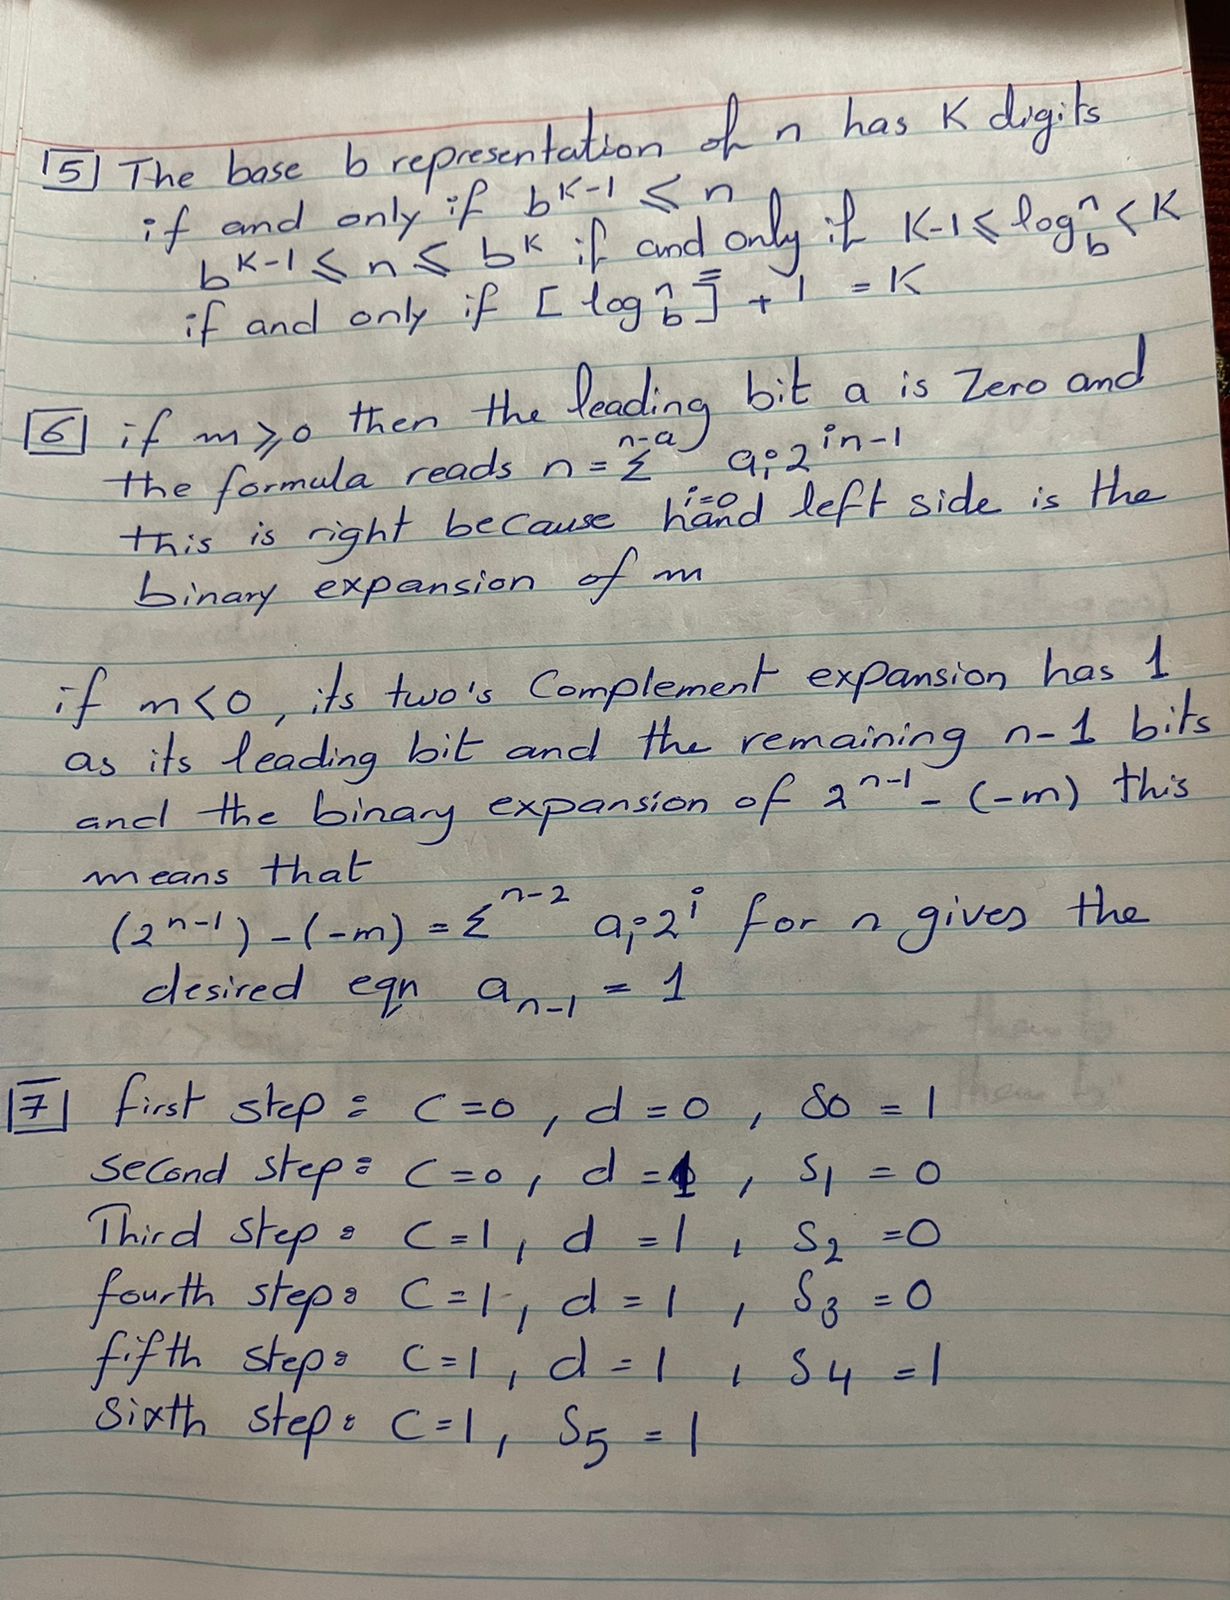 5 The base b representation of n has K digits
if and only if b^K-1 ≤ n
b^K-1 ≤ n ≤ b^K if and only if K-1 ≤ log_b^n < K
if and only if [ log_b^n ] + 1 = K
6 if m ≥ 0 then the leading bit a is Zero and
the formula reads n = Σ_{i=0}^{n-a} a_i 2^{in-1}
this is right because hand left side is the
binary expansion of m
if m < 0, its two's Complement expansion has 1
as its leading bit and the remaining n-1 bits
and the binary expansion of 2^{n-1} - (-m) this
means that
(2^{n-1}) - (-m) = Σ^{n-2} a_i 2^i for n gives the
desired eqn a_{n-1} = 1
7 first step: C=0, d=0, S0 = 1
Second step: C=0, d=1, S1 = 0
Third step: C=1, d=1, S2 = 0
fourth step: C=1, d=1, S3 = 0
fifth step: C=1, d=1, S4 = 1
Sixth step: C=1, S5 = 1